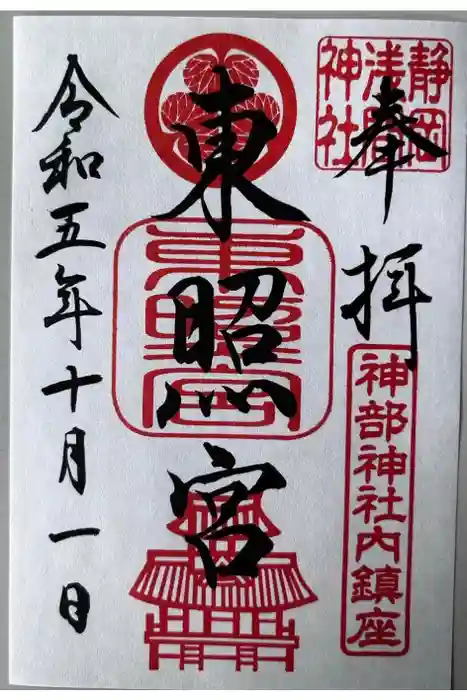 静岡浅間神社
奉拝
神部神社内鎮座
東照宮
東照宮
令和五年十月一日